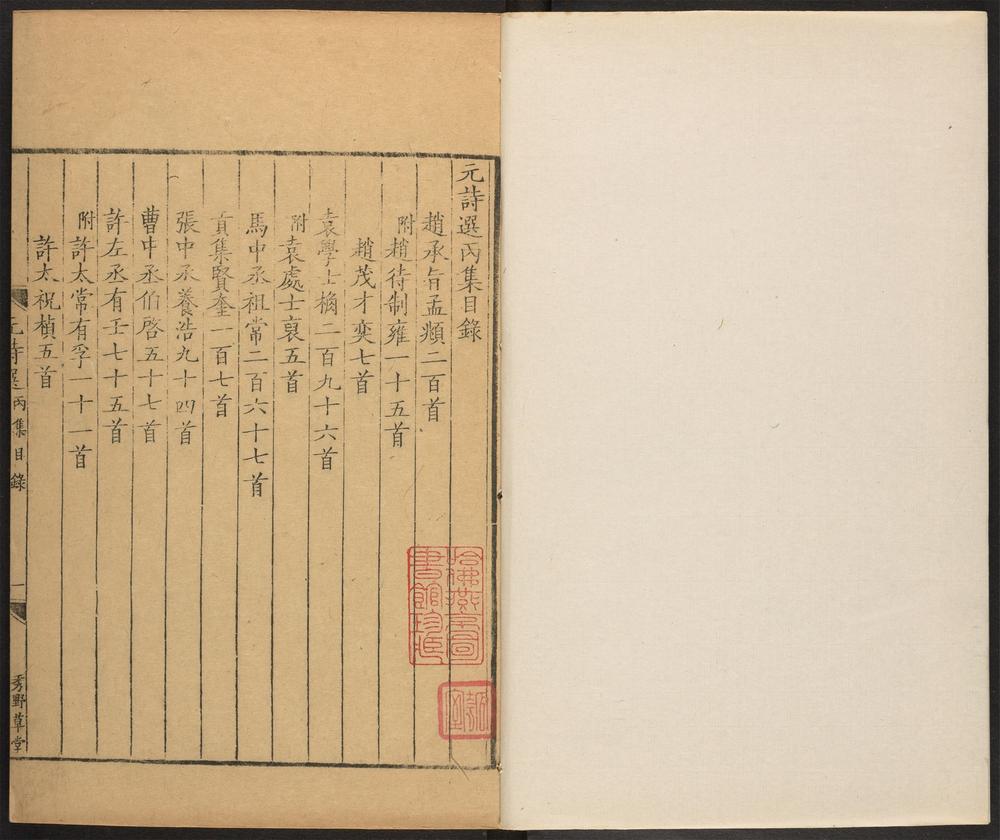 元詩選丙集目錄
趙承旨孟頫二百首
附趙待制雍一十五首
趙茂才奕七首
袁學士桷二百九十六首
附袁處士裒五首
馬中丞祖常二百六十七首
貢集賢奎一百七首
張中丞養浩九十四首
曹中丞伯啓五十七首
許左丞有壬七十五首
附許太常有孚一十一首
許太祝楨五首
元詩選丙集目錄
一
秀野草堂
哈佛燕京圖書館珍藏